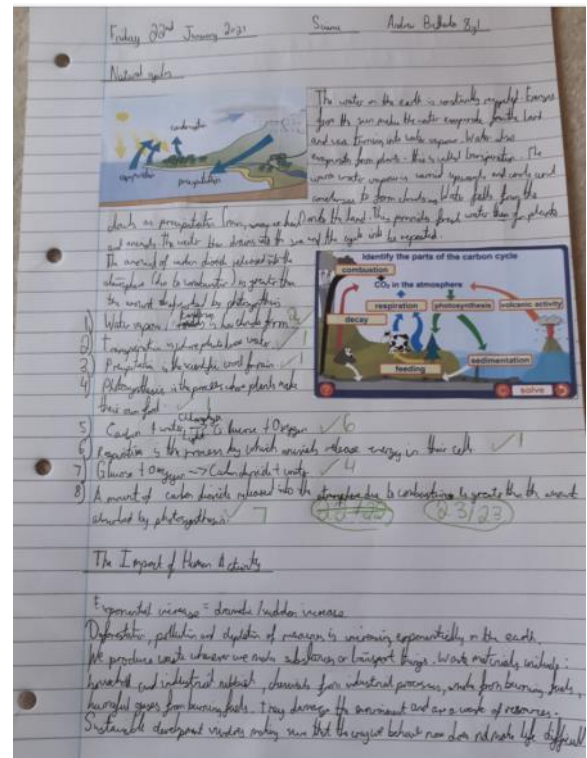 Friday 22nd January 2021 Science Andrew 8y1
Natural cycles
The water on the earth is constantly recycled. Energy
from the sun makes the water evaporate from the land
and sea turning into water vapour. Water also
evaporates from plants - this is called transpiration. The
water vapour is carried upwards and cools and
condenses to form clouds. Water falls from the
condensation
evaporation
precipitation
clouds as precipitation onto the land. This provides fresh water for plants
and animals. The water then drains into the sea and the cycle will be repeated.
The amount of carbon dioxide released into the
atmosphere (due to combustion) is greater than
the amount absorbed by photosynthesis
Identify the parts of the carbon cycle
combustion
CO₂ in the atmosphere
respiration
photosynthesis
volcanic activity
decay
feeding
sedimentation
solve
1) Water vapour is how clouds form
2) transpiration is where plants lose water ✓ 1
3) Precipitation is the scientific word for rain ✓ 1
4) Photosynthesis is the process where plants make
their own food ✓ 1
5) Carbon + water Chlorophyll light Glucose + Oxygen ✓ 6
6) Respiration is the process by which animals release energy in their cells ✓ 1
7) Glucose + Oxygen -> Carbon dioxide + water ✓ 4
8) Amount of carbon dioxide released into the atmosphere due to combustion is greater than the amount
absorbed by photosynthesis. ✓ 7 23/23
The Impact of Human Activity
Exponential increase = dramatic/sudden increase
Deforestation, pollution and depletion of resources is increasing exponentially on the earth.
We produce waste whenever we make substances or transport things. Waste materials include:
household and industrial rubbish, chemicals from industrial processes, smoke from burning fuels,
harmful gases from burning fuels. They damage the environment and are a waste of resources.
Sustainable development involves making sure that the way we behave now does not make life difficult